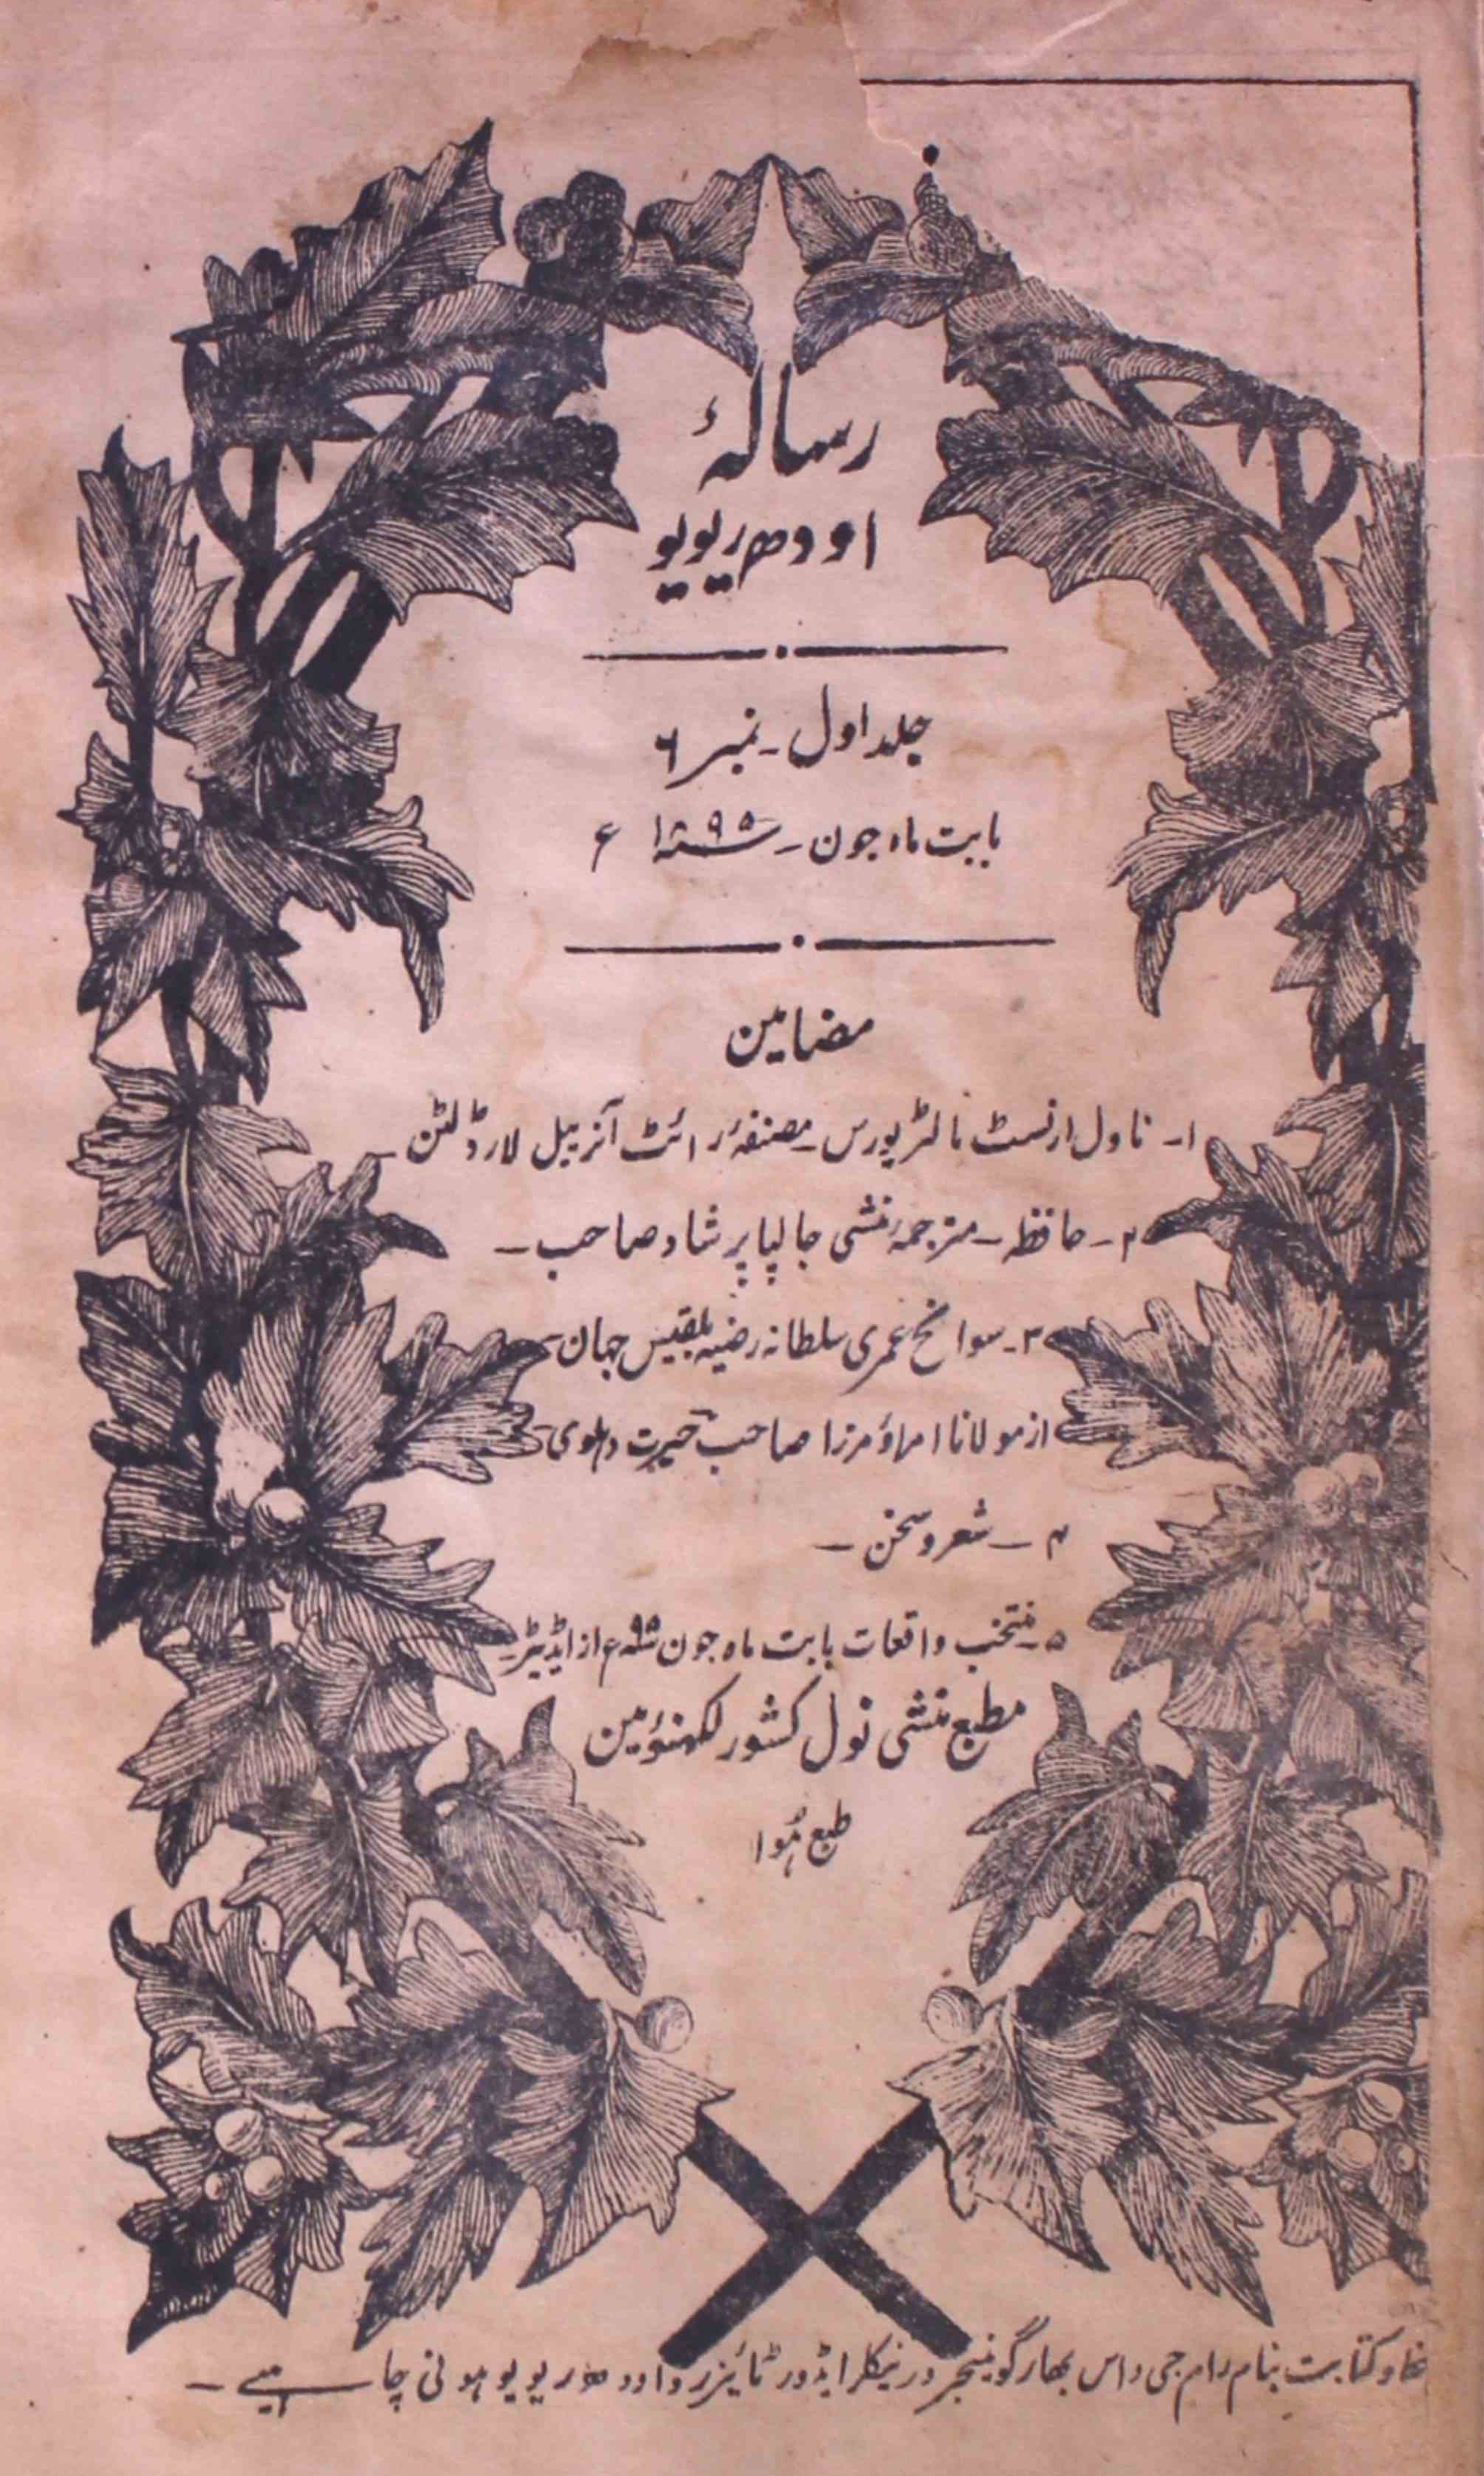 رسالۂ
اودھ ریویو
جلد اول - نمبر ۶
بابت ماہ جون - ۱۸۹۵ء
مضامین
۱- ناول ارنسٹ مالٹرپورس - مصنفۂ رائٹ آنزبیل لارڈ لٹن -
۲- حافظہ - مترجمہ منشی جالپا پرشاد صاحب -
۳- سوانح عمری سلطانہ رضیہ بلقیس جہان -
از مولانا امراؤ مرزا صاحب حیرت دہلوی -
۴ - شعر و سخن -
۵- منتخب واقعات بابت ماہ جون ۹۵ء از ایڈیٹر -
مطبع منشی نول کشور لکھنؤ مین
طبع ہُوا
خط و کتابت بنام رام جی داس بھارگو منیجر ورنیکلر ایڈورٹائیزر و اودھ ریویو ہونی چاہیے -